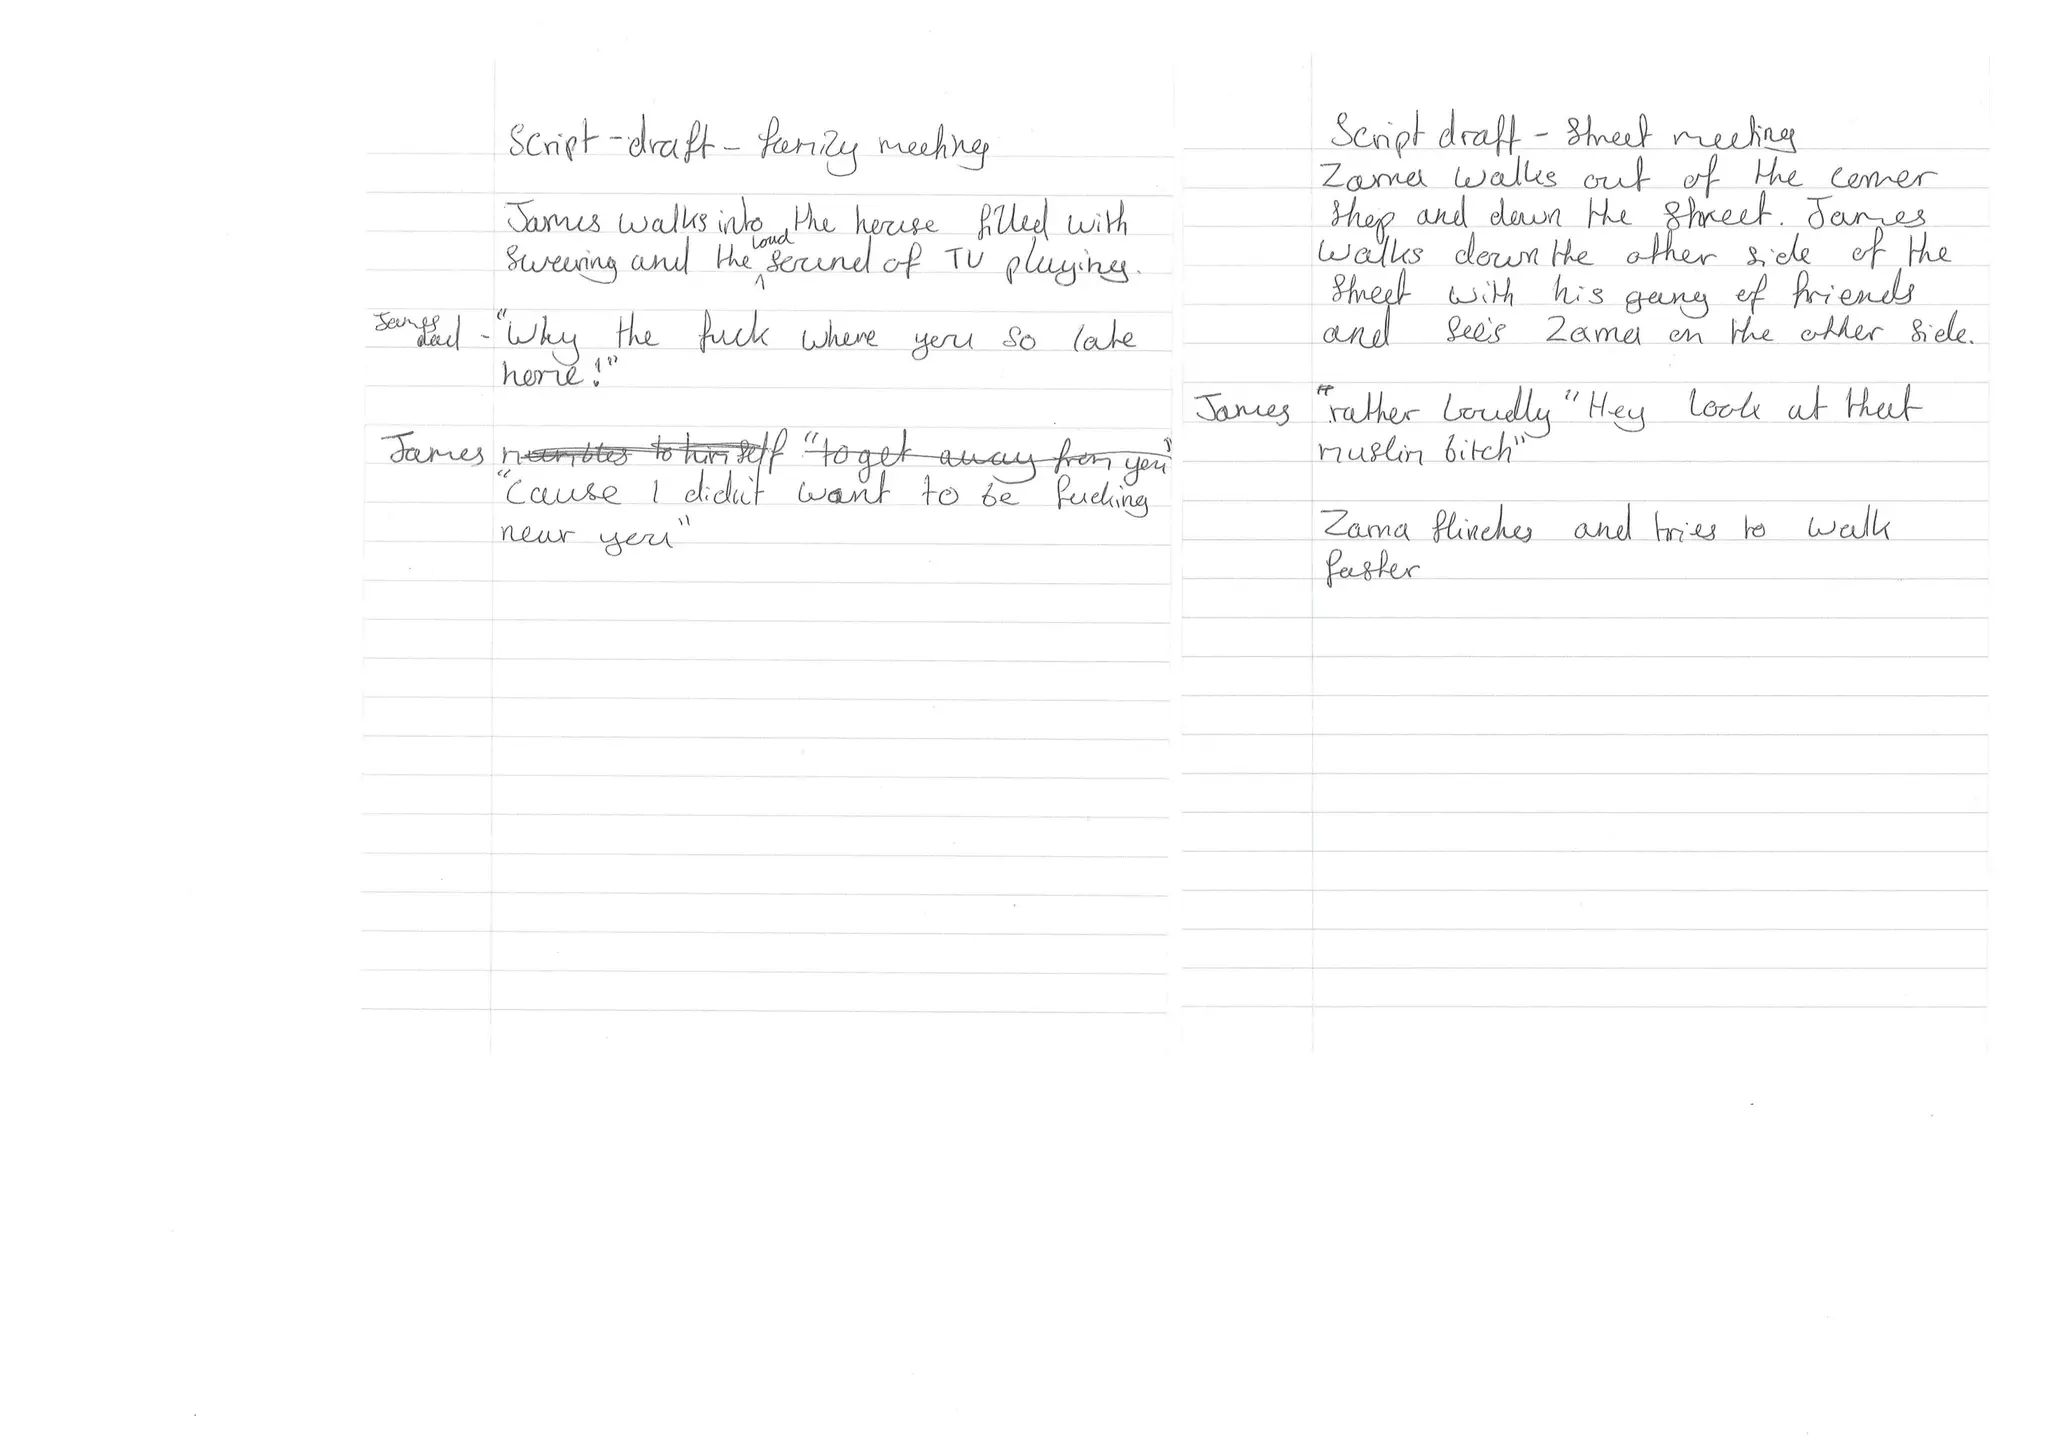 Script - draft - family meeting
James walks into the house filled with
swearing and the loud sound of TV playing.
James dad - "Why the fuck where you so late
home!"
James mumbles to himself "to get away from you"
"Cause I didn't want to be fucking
near you"
Script draft - street meeting
Zama walks out of the corner
shop and down the street. James
walks down the other side of the
street with his gang of friends
and see's Zama on the other side.
James "rather loudly "Hey look at that
muslim bitch"
Zama flinches and tries to walk
faster